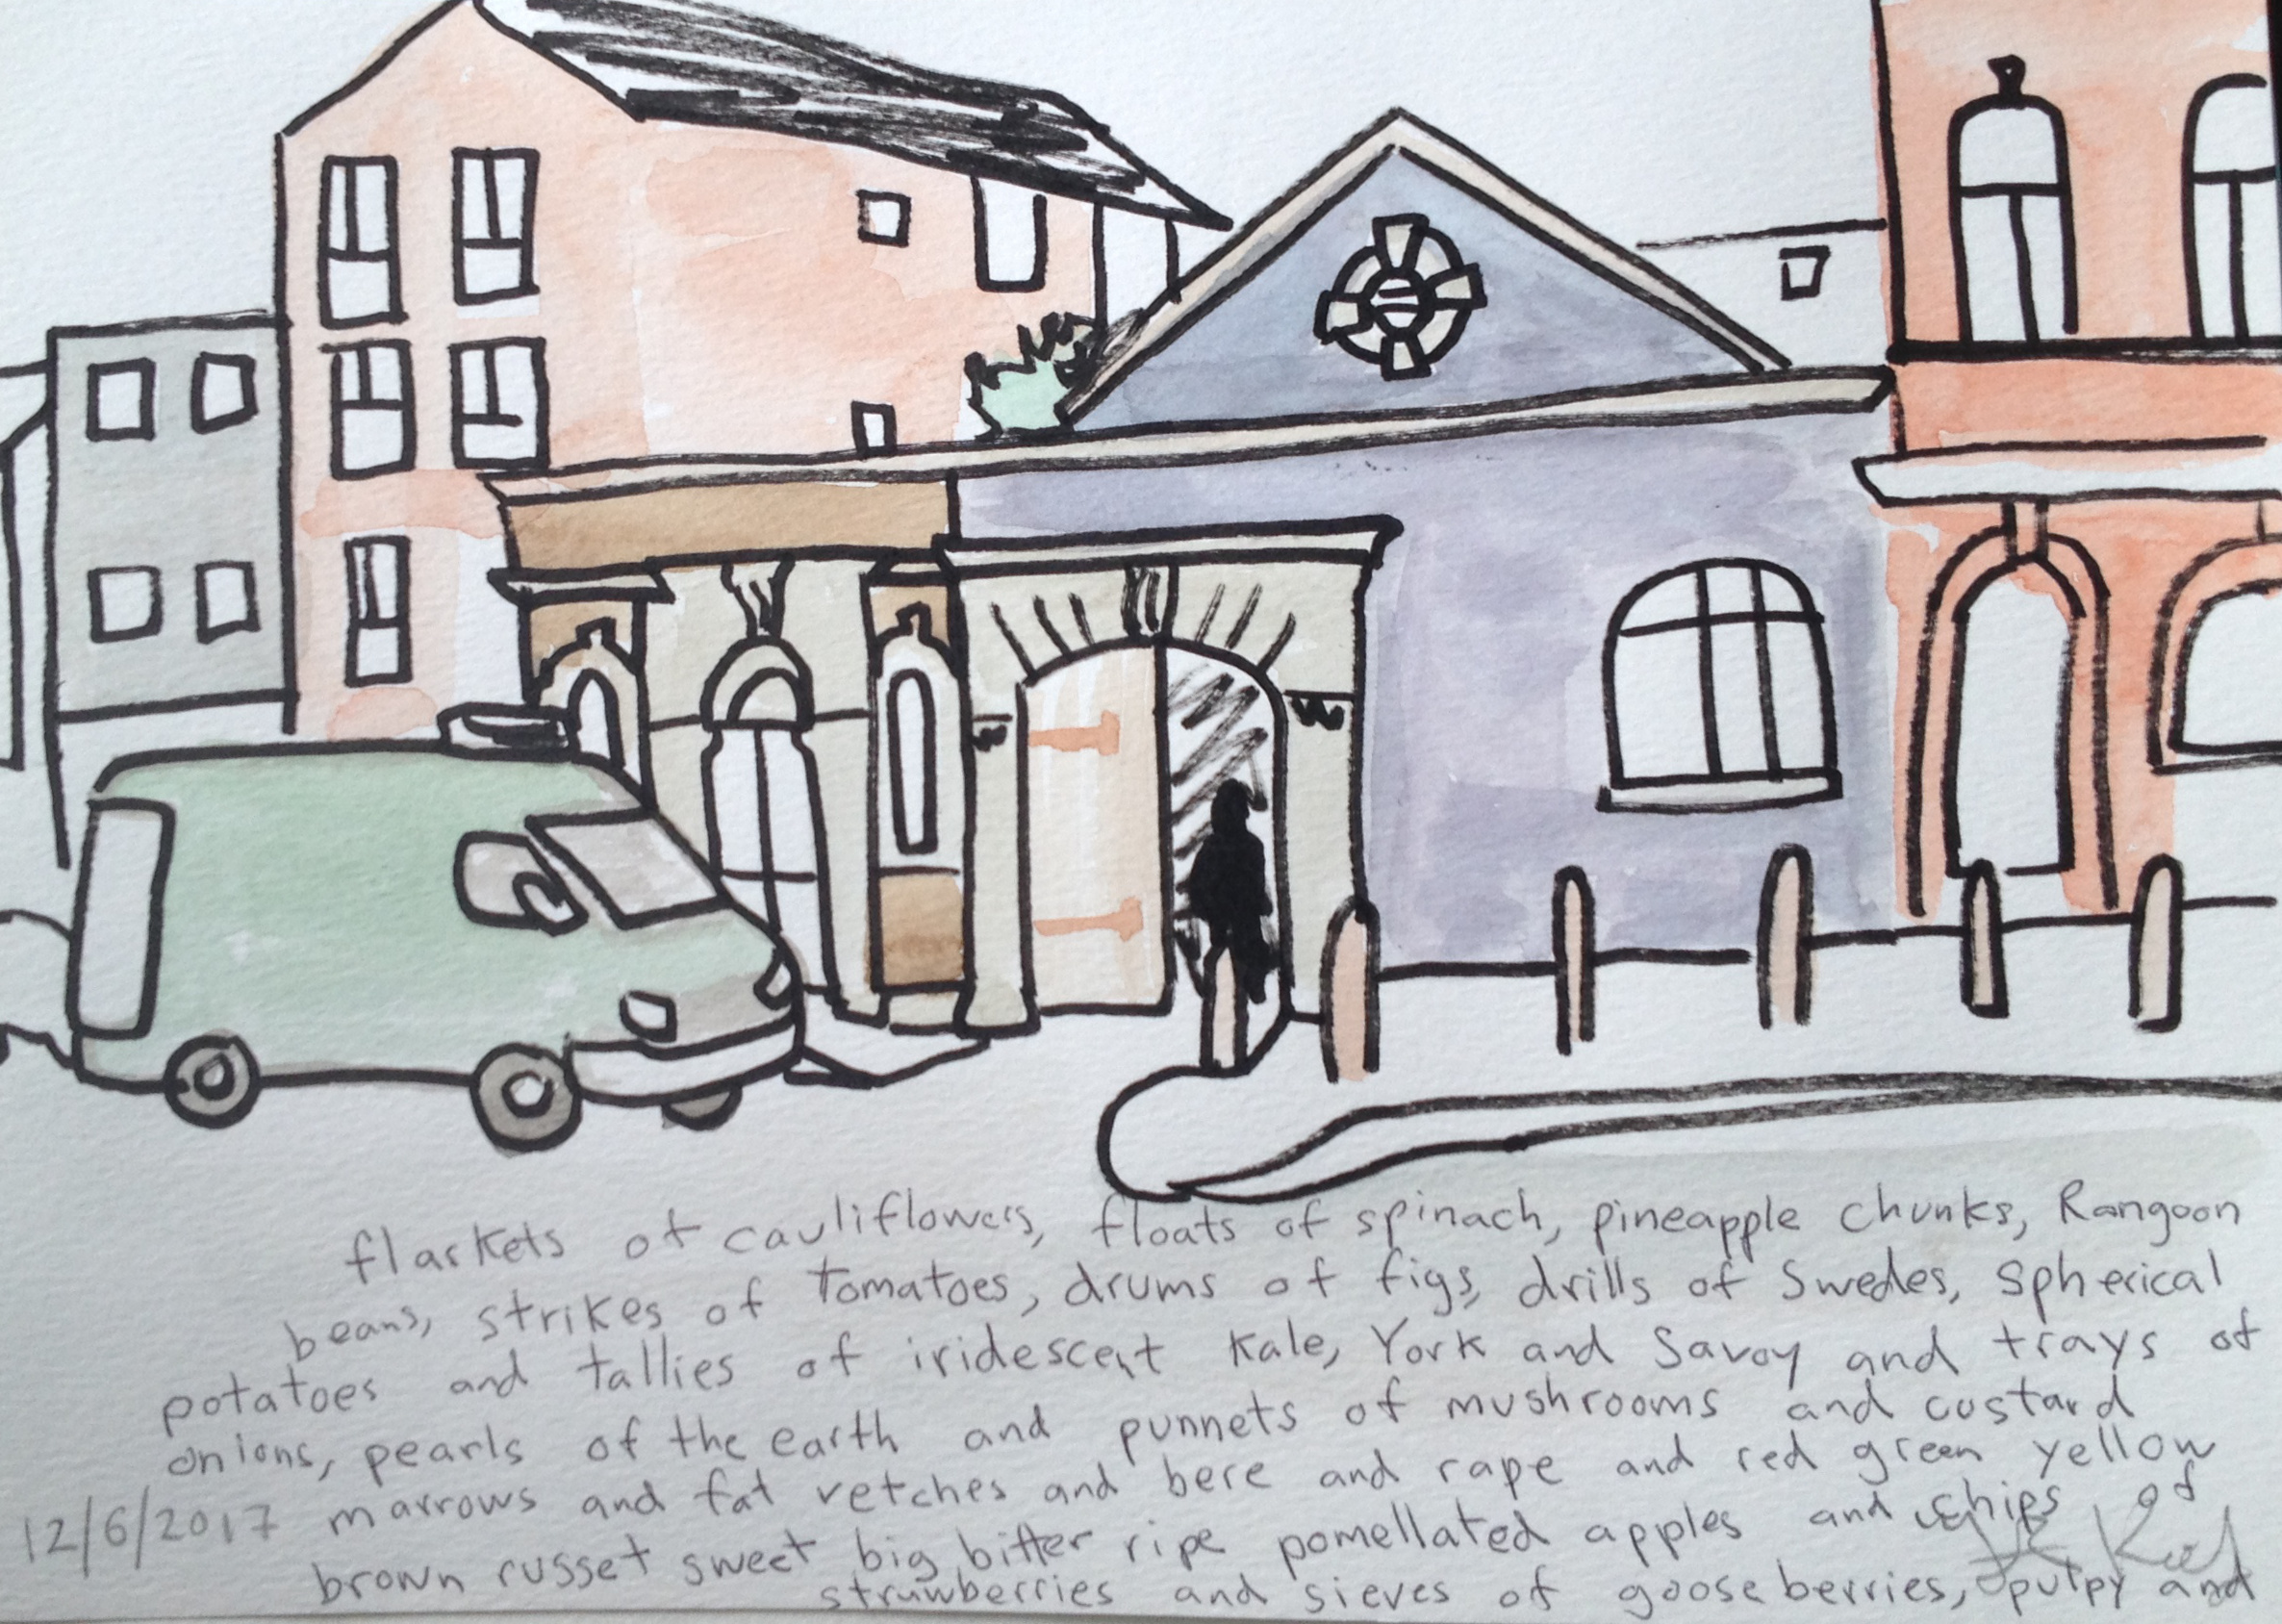 flaskets of cauliflowers, floats of spinach, pineapple chunks, Rangoon
beans, strikes of tomatoes, drums of figs, drills of Swedes, spherical
potatoes and tallies of iridescent Kale, York and Savoy and trays of
onions, pearls of the earth and punnets of mushrooms and custard
marrows and fat vetches and bere and rape and red green yellow
12/6/2017
brown russet sweet big bitter ripe pomellated apples and chips of
strawberries and sieves of gooseberries, pulpy and